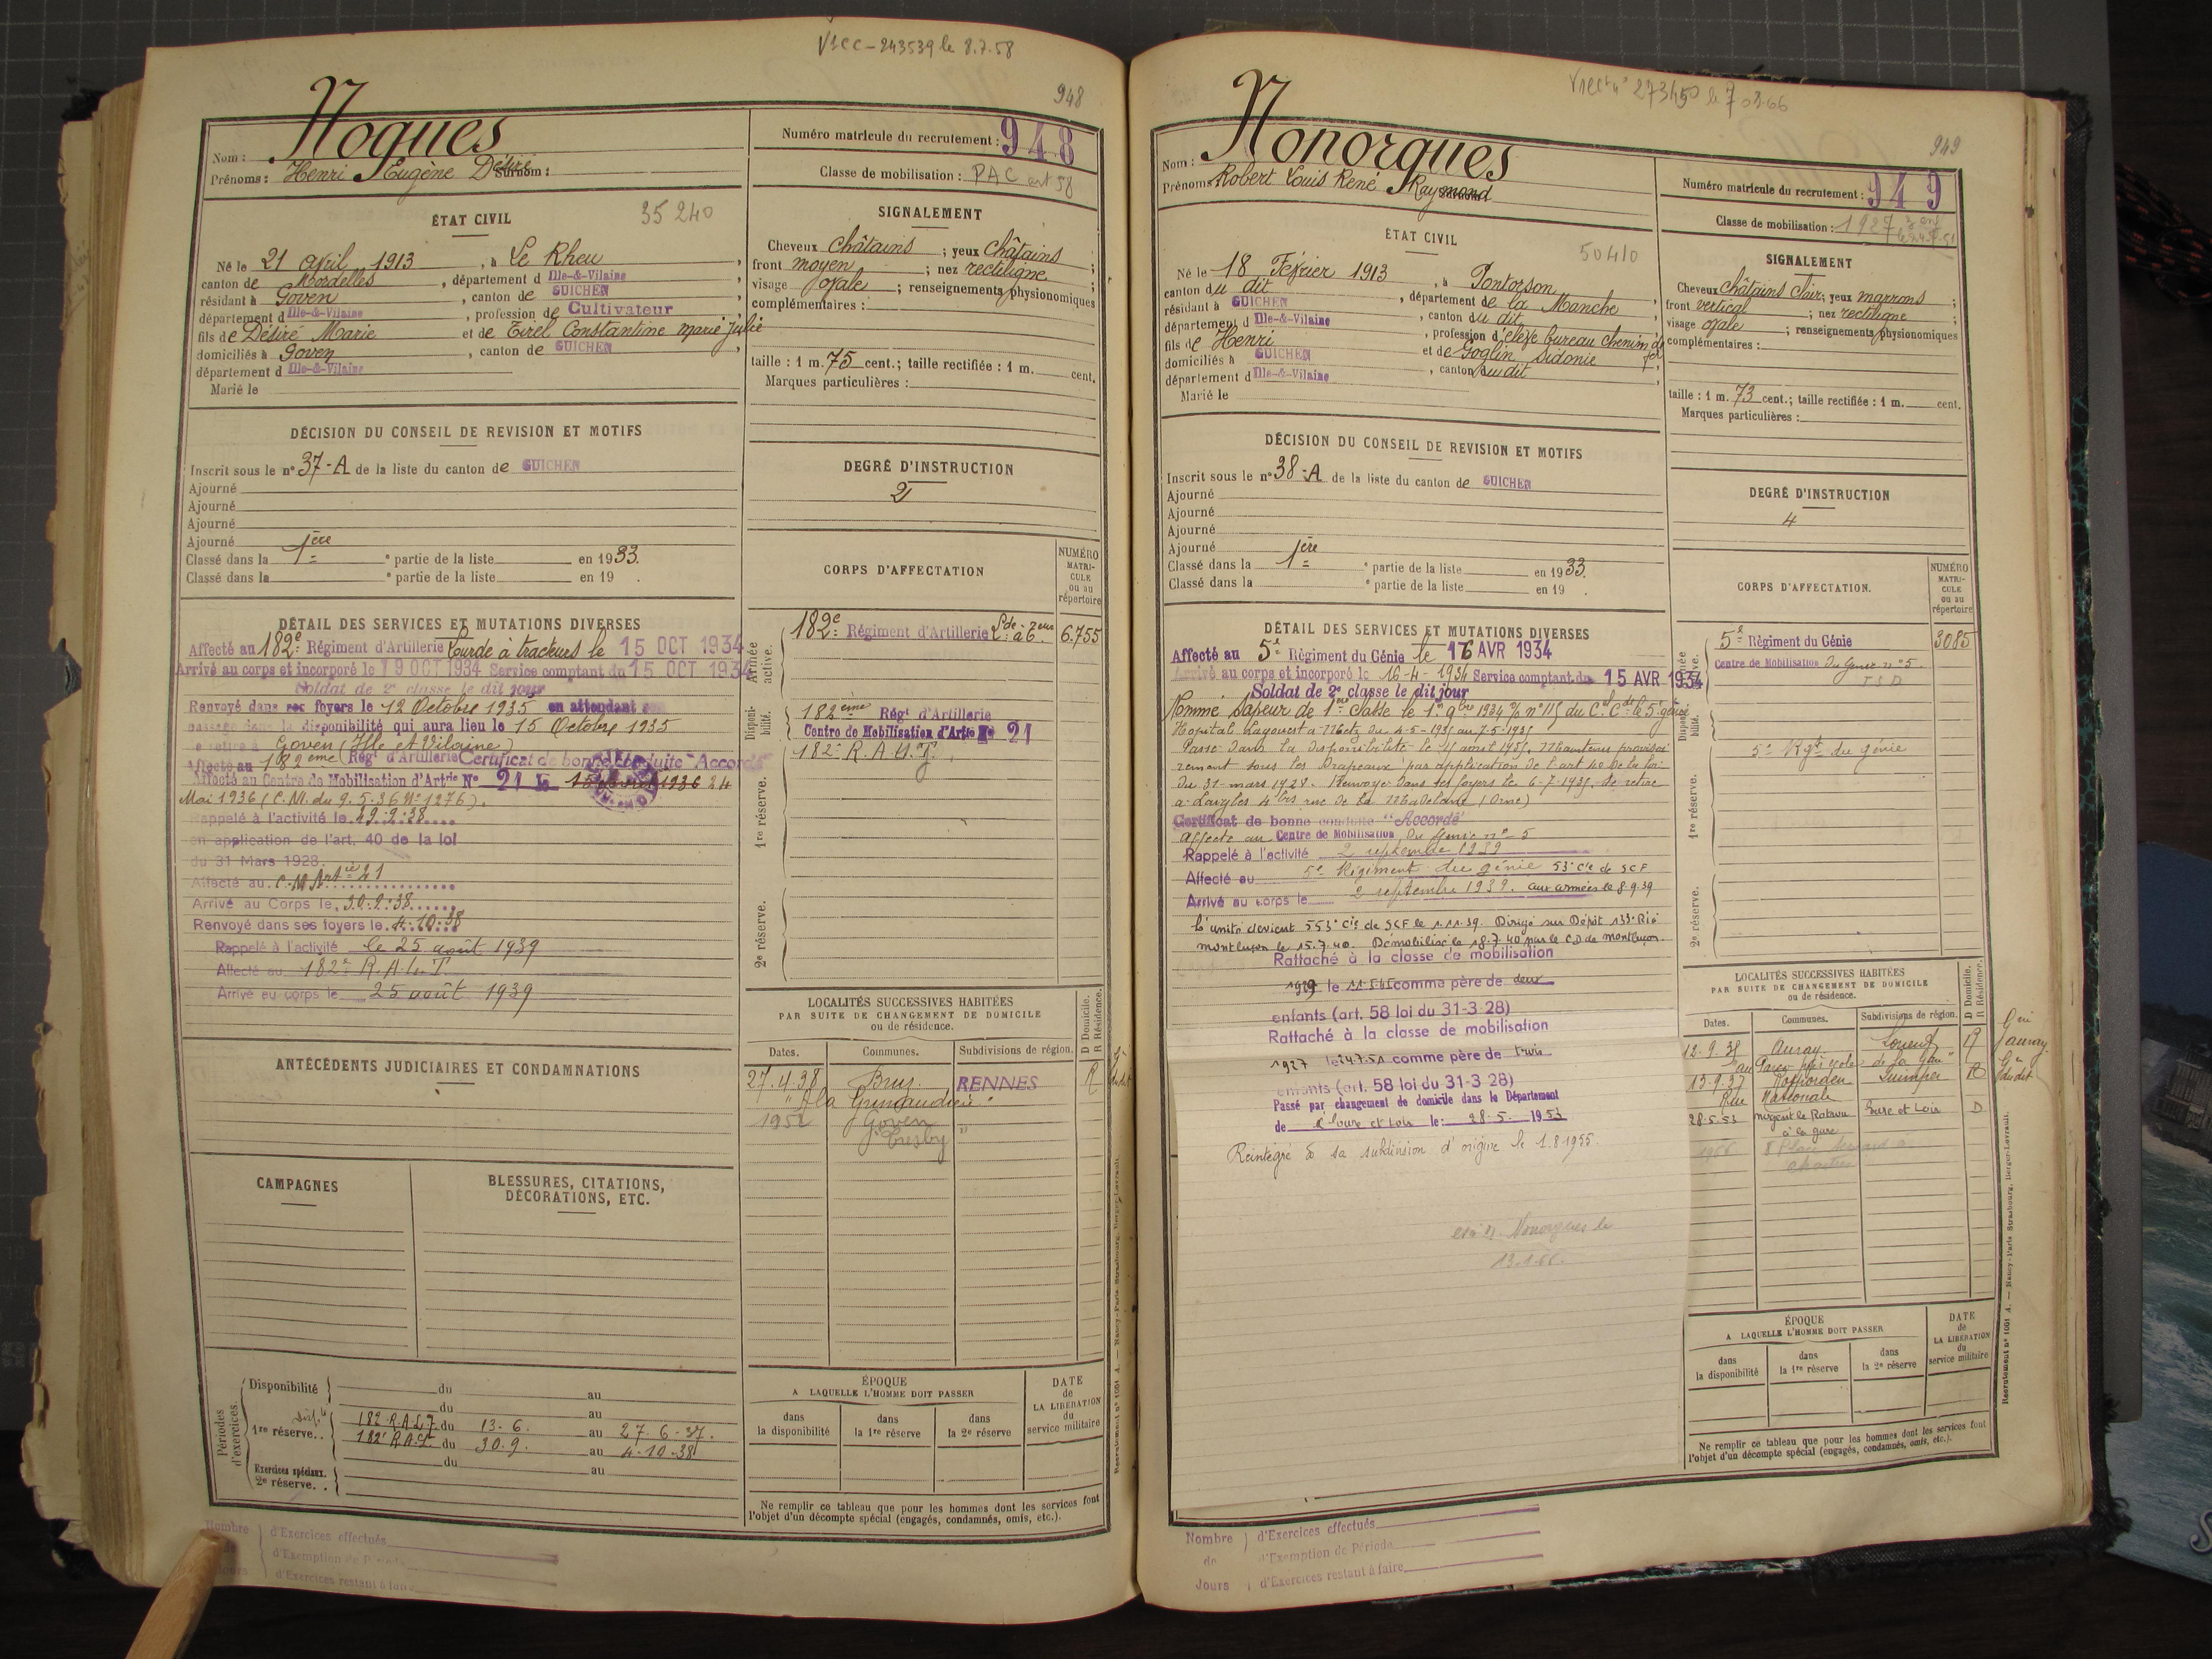 948
Nom : Nogues
Prénoms : Henri Eugène Désiré Surnom :
Numéro matricule du recrutement : 948
Classe de mobilisation : PAC art 58
ÉTAT CIVIL
35240
Né le 21 avril 1913, à Le Rheu,
canton de Mordelles, département d Ille-&-Vilaine
résidant à Goven, canton de GUICHEN
département d Ille-&-Vilaine, profession de Cultivateur
fils de Désiré Marie et de Tirel Constantine Marie Julie
domiciliés à Goven, canton de GUICHEN,
département d Ille-&-Vilaine
Marié le
SIGNALEMENT
Cheveux châtains ; yeux châtains ;
front moyen ; nez rectiligne ;
visage ovale ; renseignements physionomiques
complémentaires :
taille : 1 m. 75 cent.; taille rectifiée : 1 m. cent.
Marques particulières :
DÉCISION DU CONSEIL DE REVISION ET MOTIFS
Inscrit sous le n° 37-A de la liste du canton de GUICHEN
Ajourné
Ajourné
Ajourné
Ajourné
Classé dans la 1ère partie de la liste en 1933.
Classé dans la partie de la liste en 19 .
DEGRÉ D'INSTRUCTION
2
DÉTAIL DES SERVICES ET MUTATIONS DIVERSES
Affecté au 182e Régiment d'Artillerie Lourde à tracteurs le 15 OCT 1934
Arrivé au corps et incorporé le 19 OCT 1934 Service comptant du 15 OCT 1934
Soldat de 2e classe le dit jour
Renvoyé dans ses foyers le 12 Octobre 1935 en attendant son
passage dans la disponibilité qui aura lieu le 15 Octobre 1935
se retire à Goven (Ille et Vilaine)
Affecté au 182ème Régt d'Artillerie Certificat de bonne conduite "Accordé"
Affecté au Centre de Mobilisation d'Artrie N° 21 le 1936 24
Mai 1936 (C.M. du 9.5.36 N° 1276).
Rappelé à l'activité le 29.9.38
en application de l'art. 40 de la loi
du 31 Mars 1928.
Affecté au C.M. Artie 21
Arrivé au Corps le 30.9.38
Renvoyé dans ses foyers le 4.10.38
Rappelé à l'activité le 25 août 1939
Affecté au 182e R.A.L.T
Arrivé au corps le 25 août 1939
CORPS D'AFFECTATION
NUMÉRO MATRICULE ou au répertoire
Armée active.
182e Régiment d'Artillerie 6.755
Disponibilité.
182ème Régt d'Artillerie
Centre de Mobilisation d'Artie N° 21
1re réserve.
2e réserve.
ANTÉCÉDENTS JUDICIAIRES ET CONDAMNATIONS
LOCALITÉS SUCCESSIVES HABITÉES
PAR SUITE DE CHANGEMENT DE DOMICILE
ou de résidence.
D Domicile.
R Résidence.
Dates. Communes. Subdivisions de région.
27.4.38 Bruz. RENNES R
1952 Goven "
CAMPAGNES
BLESSURES, CITATIONS,
DÉCORATIONS, ETC.
Périodes d'exercices.
Disponibilité du au
du au
1re réserve. 182 R.A.L.T du 13-6. au 27-6-37.
182 R.A.L.T. du 30.9. au 4-10-38
du au
Exercices spéciaux.
2e réserve. au
ÉPOQUE
A LAQUELLE L'HOMME DOIT PASSER
dans la disponibilité
dans la 1re réserve
dans la 2e réserve
DATE de LA LIBÉRATION du service militaire
Ne remplir ce tableau que pour les hommes dont les services font
l'objet d'un décompte spécial (engagés, condamnés, omis, etc.).
Nombre de Jours
d'Exercices effectués
d'Exemption de Période
d'Exercices restant à faire
949
Nom : Nonorgues
Prénoms : Robert Louis René Raymond
Numéro matricule du recrutement : 949
Classe de mobilisation : 1927
ÉTAT CIVIL
50410
Né le 18 Février 1913, à Pontorson,
canton du dit, département de la Manche
résidant à GUICHEN, canton du dit
département d Ille-&-Vilaine, profession d'élève bureau chemin de fer
fils de Henri et de Goglin Sidonie
domiciliés à GUICHEN, canton du dit
département d Ille-&-Vilaine
Marié le
SIGNALEMENT
Cheveux châtains clair; yeux marrons ;
front vertical ; nez rectiligne ;
visage ovale ; renseignements physionomiques
complémentaires :
taille : 1 m. 73 cent.; taille rectifiée : 1 m. cent.
Marques particulières :
DÉCISION DU CONSEIL DE REVISION ET MOTIFS
Inscrit sous le n° 38-A de la liste du canton de GUICHEN
Ajourné
Ajourné
Ajourné
Ajourné
Classé dans la 1ère partie de la liste en 1933.
Classé dans la partie de la liste en 19 .
DEGRÉ D'INSTRUCTION
4
DÉTAIL DES SERVICES ET MUTATIONS DIVERSES
Affecté au 5e Régiment du Génie le 16 AVR 1934
Arrivé au corps et incorporé le 16-4-1934 Service comptant du 15 AVR 1934
Soldat de 2e classe le dit jour
Nommé Sapeur de 1ère classe le 1er 9bre 1934
Hopital Lagouest à Metz du 4-5-1935 au 7-5-1935
Passé dans la disponibilité le 15 avril 1935. Maintenu provisoi
rement sous les Drapeaux par application de l'art 40 de la loi
du 31-mars 1928. Renvoyé dans ses foyers le 6-7-1935, se retire
à Laigles 4bis rue de la Madelaine (Orne)
Certificat de bonne conduite "Accordé"
Affecté au Centre de Mobilisation du Génie n° 5
Rappelé à l'activité 2 septembre 1939
Affecté au 5e Régiment du génie 53e Cie de SCF
Arrivé au corps le 2 septembre 1939. aux armées le 8.9.39
L'unité devient 553e Cie de SCF le 1.11.39. Dirigé sur Dépôt 133e
Montluçon le 15.7.40. Démobilisé le 18.7.40 par le CD de Montluçon.
Rattaché à la classe de mobilisation
1929 le comme père de deux
enfants (art. 58 loi du 31-3-28)
Rattaché à la classe de mobilisation
1927 le 24.7.51 comme père de trois
enfants (art. 58 loi du 31-3-28)
Passé par changement de domicile dans le Département
de l'Eure et Loir le: 28.5. 1953
Réintégré à sa subdivision d'origine le 1.8.1955.
CORPS D'AFFECTATION.
NUMÉRO MATRICULE ou au répertoire
5e Régiment du Génie 3085
Centre de Mobilisation du Génie n° 5
5e Rgt du génie
1re réserve.
2e réserve.
LOCALITÉS SUCCESSIVES HABITÉES
PAR SUITE DE CHANGEMENT DE DOMICILE
ou de résidence.
D Domicile.
R Résidence.
Dates. Communes. Subdivisions de région.
12-9-35 Auray Lorient R
13-9-37 Rosporden Quimper R
Rue Nationale
28.5.53 Nogent le Rotrou Eure et Loir D
à la gare
1966
ÉPOQUE
A LAQUELLE L'HOMME DOIT PASSER
dans la disponibilité
dans la 1re réserve
dans la 2e réserve
DATE de LA LIBÉRATION du service militaire
Ne remplir ce tableau que pour les hommes dont les services font
l'objet d'un décompte spécial (engagés, condamnés, omis, etc.).
Nombre de Jours
d'Exercices effectués
d'Exemption de Période
d'Exercices restant à faire